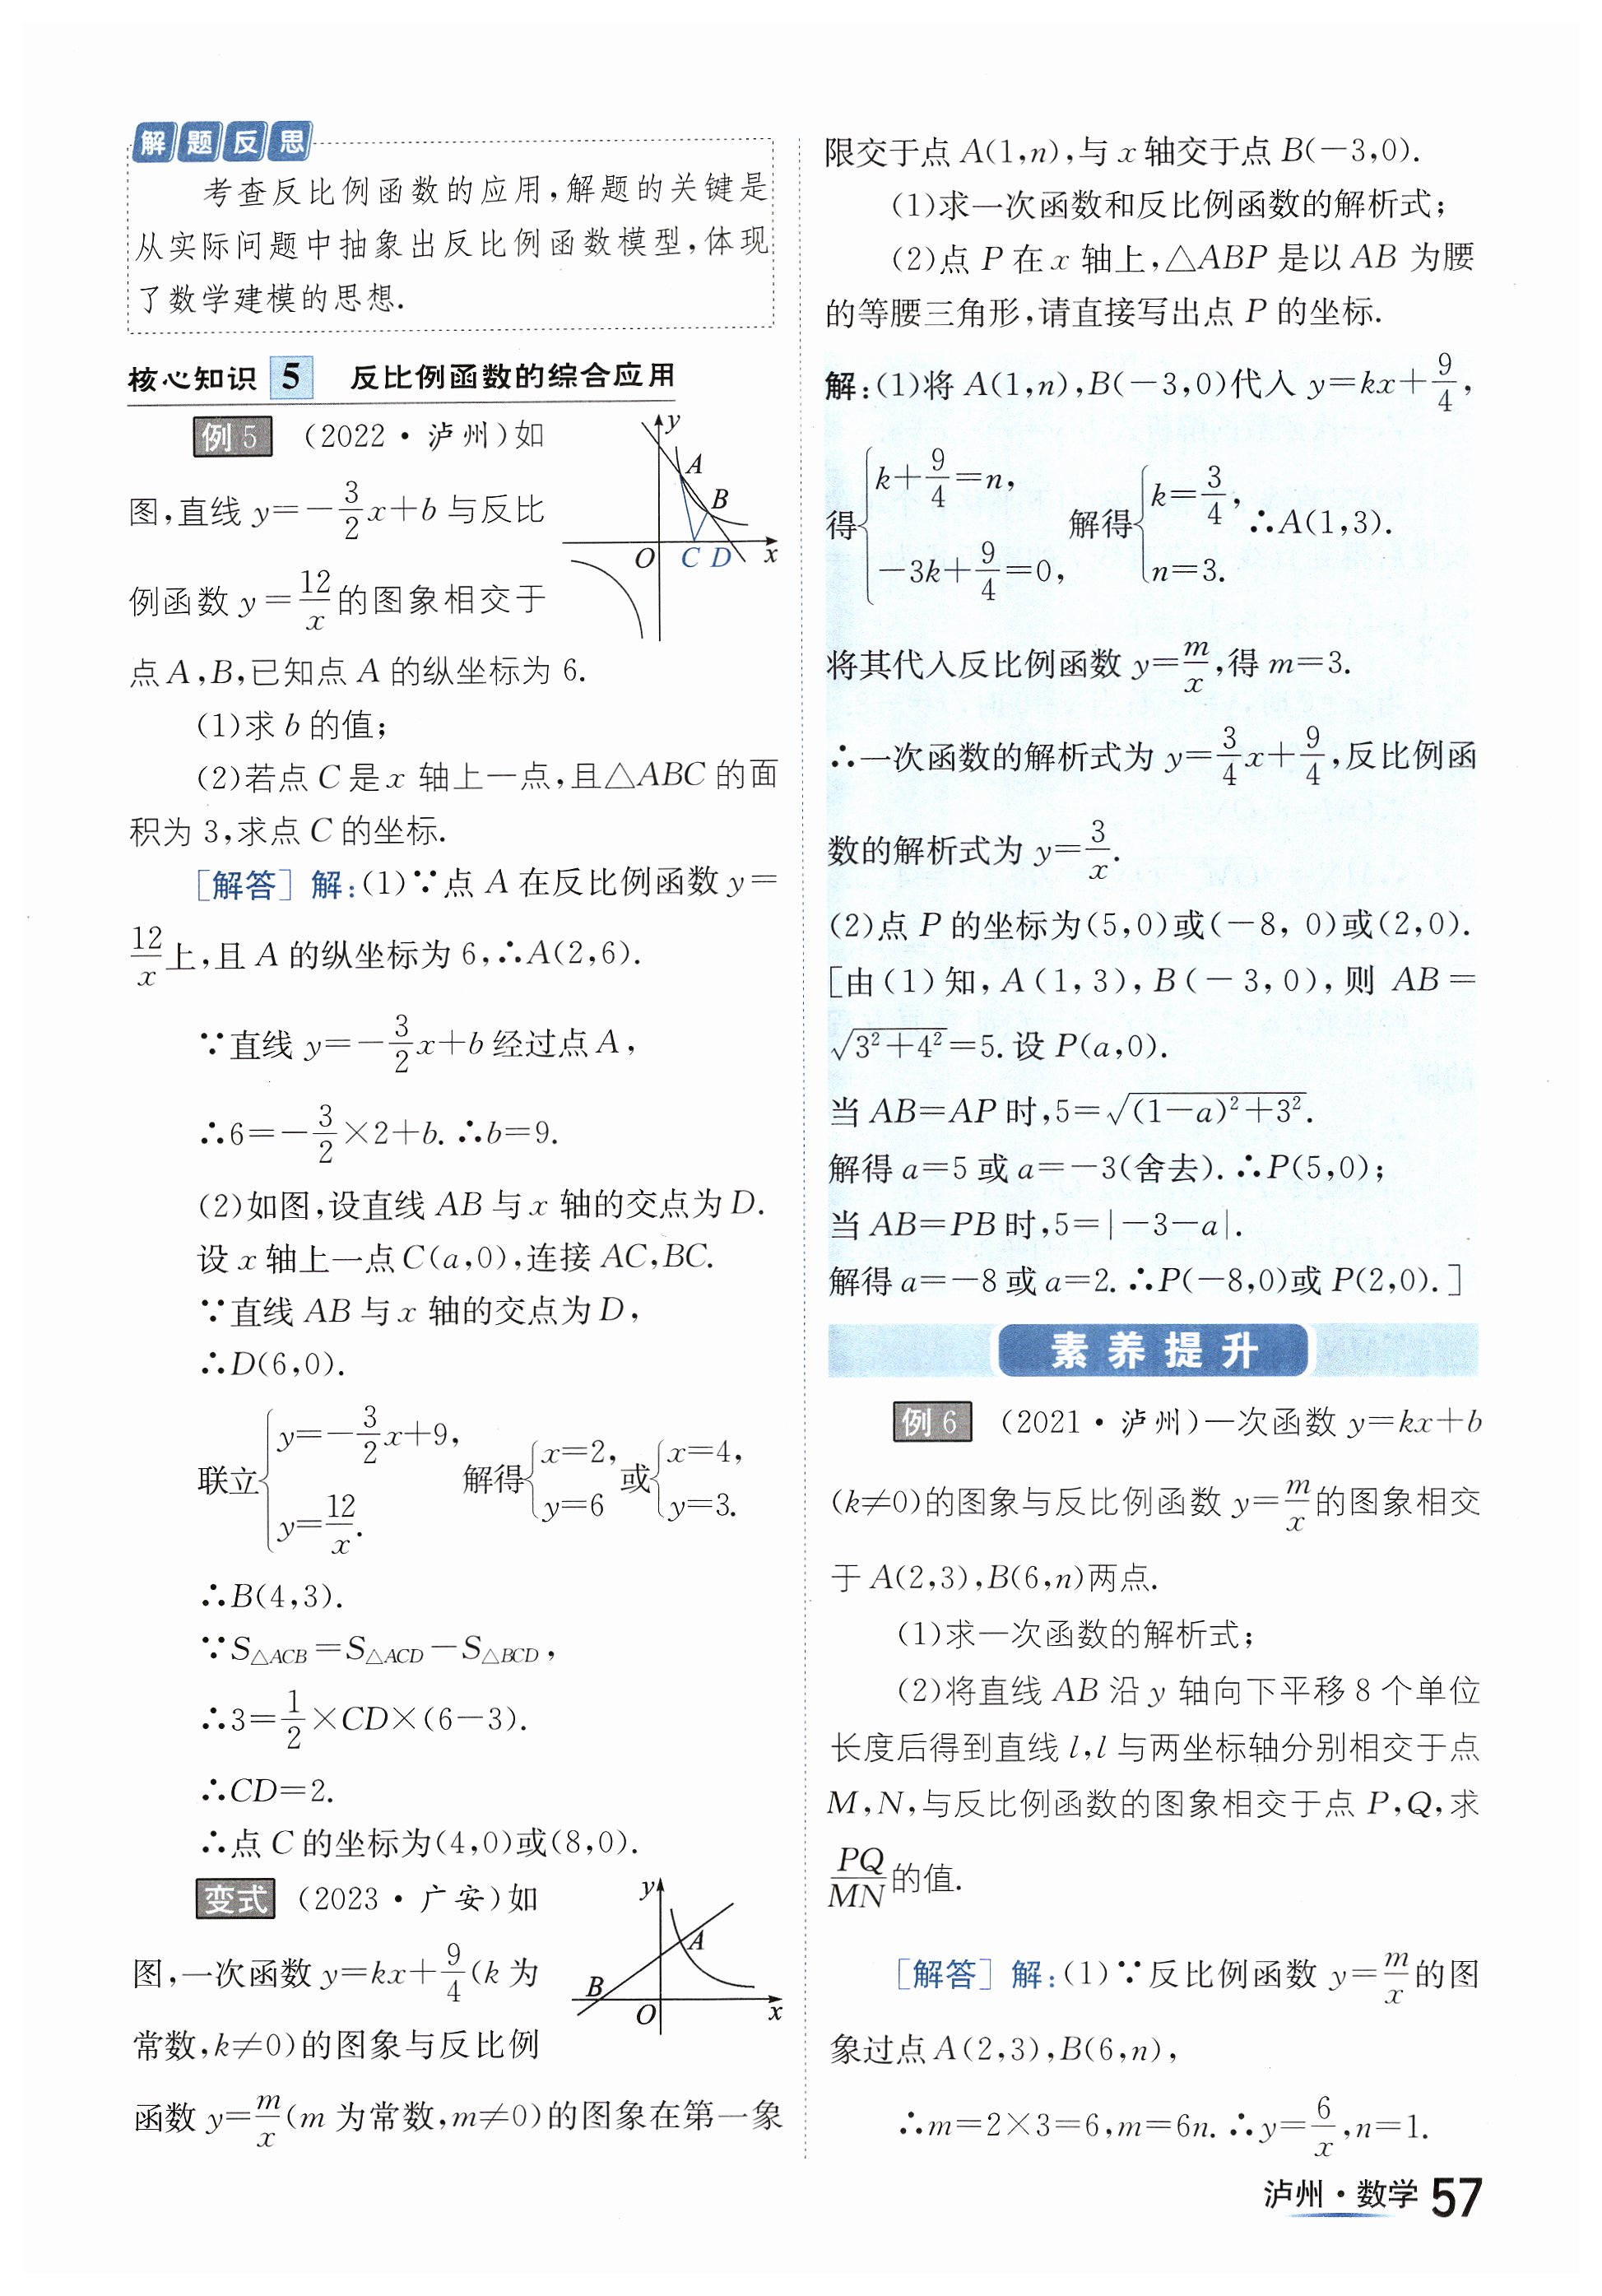 解题反思
考查反比例函数的应用,解题的关键是
从实际问题中抽象出反比例函数模型,体现
了数学建模的思想.
核心知识 5 反比例函数的综合应用
例 5 (2022·泸州)如
图,直线 y=-\frac{3}{2}x+b 与反比
例函数 y=\frac{12}{x}的图象相交于
点 A,B,已知点 A 的纵坐标为 6.
(1)求 b 的值;
(2)若点 C 是 x 轴上一点,且△ABC 的面
积为 3,求点 C 的坐标.
y
A
B
O C D x
[解答] 解:(1)∵点 A 在反比例函数 y=
\frac{12}{x}上,且 A 的纵坐标为 6,∴A(2,6).
∵直线 y=-\frac{3}{2}x+b 经过点 A,
∴6=-\frac{3}{2}×2+b. ∴b=9.
(2)如图,设直线 AB 与 x 轴的交点为 D.
设 x 轴上一点 C(a,0),连接 AC,BC.
∵直线 AB 与 x 轴的交点为 D,
∴D(6,0).
联立{y=-\frac{3}{2}x+9, y=\frac{12}{x}. 解得{x=2, y=6 或{x=4, y=3.
∴B(4,3).
∵S△ACB=S△ACD-S△BCD,
∴3=\frac{1}{2}×CD×(6-3).
∴CD=2.
∴点 C 的坐标为(4,0)或(8,0).
变式 (2023·广安)如
图,一次函数 y=kx+\frac{9}{4}(k 为
常数,k≠0)的图象与反比例
函数 y=\frac{m}{x}(m 为常数,m≠0)的图象在第一象
y
A
B
O x
限交于点 A(1,n),与 x 轴交于点 B(-3,0).
(1)求一次函数和反比例函数的解析式;
(2)点 P 在 x 轴上,△ABP 是以 AB 为腰
的等腰三角形,请直接写出点 P 的坐标.
解:(1)将 A(1,n),B(-3,0)代入 y=kx+\frac{9}{4},
得{k+\frac{9}{4}=n, -3k+\frac{9}{4}=0, 解得{k=\frac{3}{4}, n=3. ∴A(1,3).
将其代入反比例函数 y=\frac{m}{x},得 m=3.
∴一次函数的解析式为 y=\frac{3}{4}x+\frac{9}{4},反比例函
数的解析式为 y=\frac{3}{x}.
(2)点 P 的坐标为(5,0)或(-8,0)或(2,0).
[由(1)知,A(1,3),B(-3,0),则 AB=
\sqrt{3²+4²}=5. 设 P(a,0).
当 AB=AP 时,5=\sqrt{(1-a)²+3²}.
解得 a=5 或 a=-3(舍去). ∴P(5,0);
当 AB=PB 时,5=|-3-a|.
解得 a=-8 或 a=2. ∴P(-8,0)或 P(2,0).]
素养提升
例 6 (2021·泸州)一次函数 y=kx+b
(k≠0)的图象与反比例函数 y=\frac{m}{x}的图象相交
于 A(2,3),B(6,n)两点.
(1)求一次函数的解析式;
(2)将直线 AB 沿 y 轴向下平移 8 个单位
长度后得到直线 l,l 与两坐标轴分别相交于点
M,N,与反比例函数的图象相交于点 P,Q,求
\frac{PQ}{MN}的值.
[解答] 解:(1)∵反比例函数 y=\frac{m}{x}的图
象过点 A(2,3),B(6,n),
∴m=2×3=6,m=6n. ∴y=\frac{6}{x},n=1.
泸州·数学 57